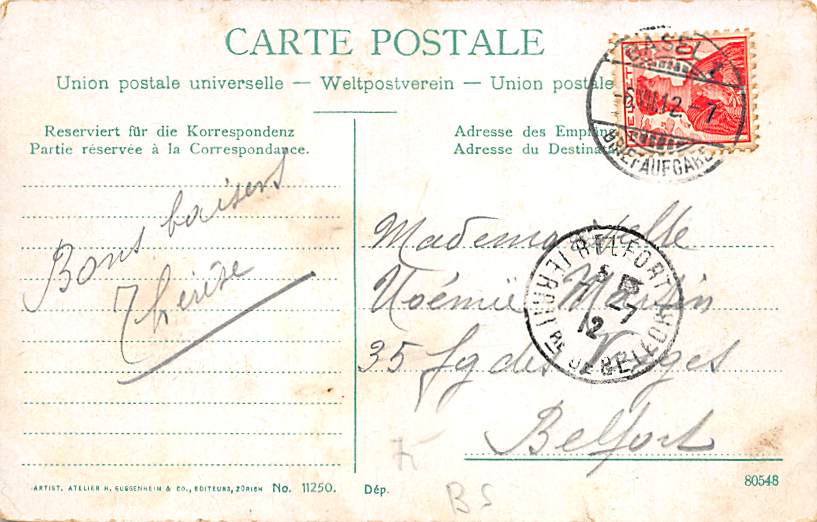 CARTE POSTALE
Union postale universelle — Weltpostverein — Union postale
Reserviert für die Korrespondenz
Partie réservée à la Correspondance.
Adresse des
Adresse du
BASEL 1
12-7
BRIEFAUFGABE
Bons baisers
Thérèse
Mademoiselle
Noémie Martin
35 fg des Vosges
Belfort
BELFORT
7-7
12
TERRIT RE DE BELFORT
BS
ARTIST. ATELIER H. GUGGENHEIM & CO., EDITEURS, ZÜRICH No. 11250. Dép.
80548